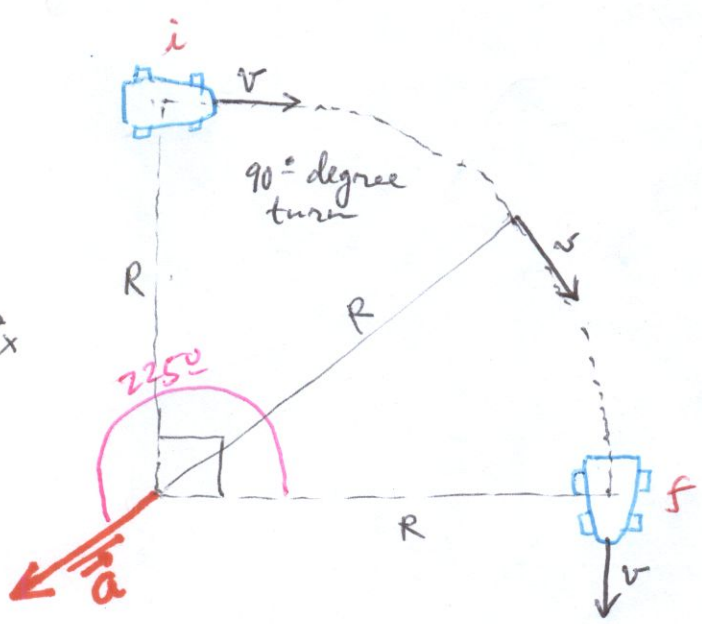 i
v
90° degree
turn
v
R
R
x
225°
f
R
a
v